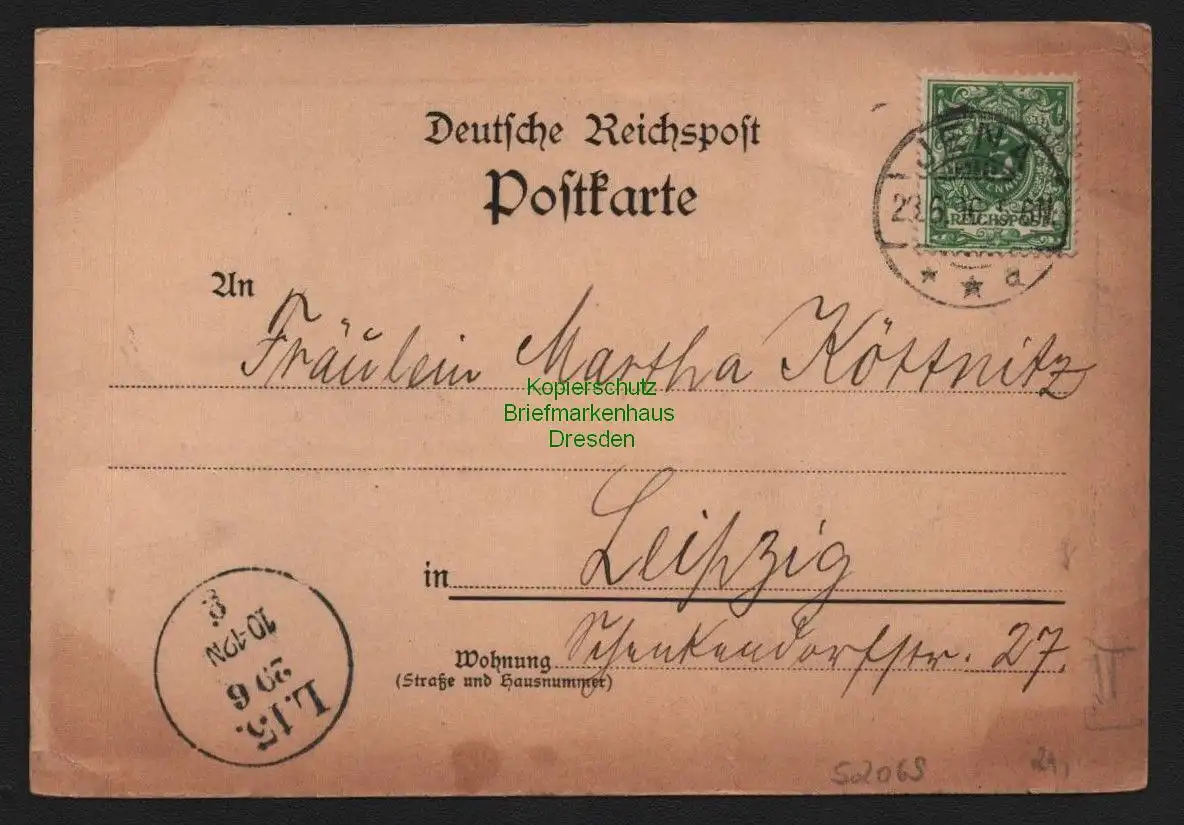 Deutsche Reichspost
Postkarte
REICHSPOST
* * a
An
Fräulein Martha Köttnitz
Kopierschutz
Briefmarkenhaus
Dresden
in Leipzig
Wohnung Schenkendorfstr. 27.
(Straße und Hausnummer)
10-12N
29 6
L.15.
S2069
21,